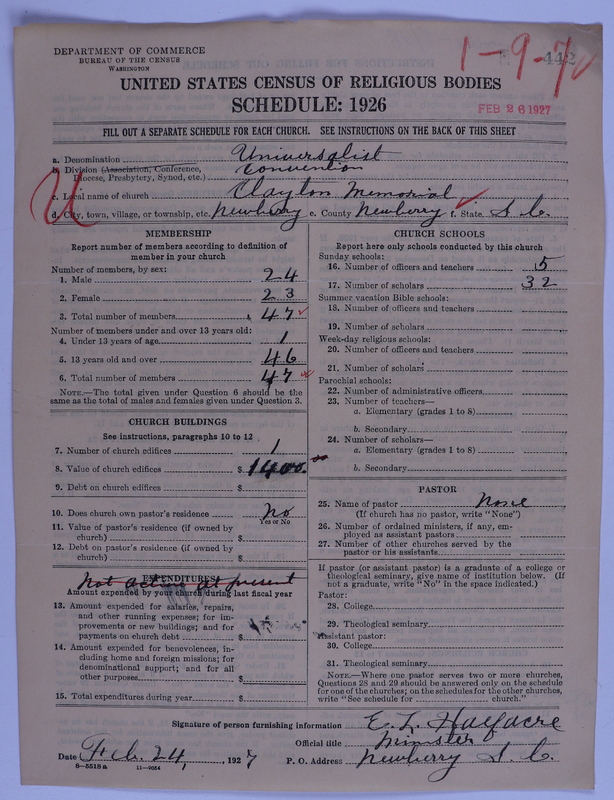 DEPARTMENT OF COMMERCE
BUREAU OF THE CENSUS
WASHINGTON
1-9-
442
UNITED STATES CENSUS OF RELIGIOUS BODIES
SCHEDULE: 1926
FEB 26 1927
FILL OUT A SEPARATE SCHEDULE FOR EACH CHURCH. SEE INSTRUCTIONS ON THE BACK OF THIS SHEET
a. Denomination Universalist
b. Division (Association, Conference, Convention
Diocese, Presbytery, Synod, etc.)
U
c. Local name of church Clayton Memorial
d. City, town, village, or township, etc. Newberry e. County Newberry f. State S. C.
MEMBERSHIP
Report number of members according to definition of
member in your church
Number of members, by sex:
1. Male 24
2. Female 23
3. Total number of members 47
Number of members under and over 13 years old:
4. Under 13 years of age 1
5. 13 years old and over 46
6. Total number of members 47
NOTE.—The total given under Question 6 should be
same as the total of males and females given under Question 3.
CHURCH BUILDINGS
See instructions, paragraphs 10 to 12
7. Number of church edifices 1
8. Value of church edifices $ 1400.00
9. Debt on church edifices $
10. Does church own pastor's residence No
Yes or No
11. Value of pastor's residence (if owned by
church) $
12. Debt on pastor's residence (if owned by
church) $
EXPENDITURES
Not active at present
Amount expended by your church during last fiscal year
13. Amount expended for salaries, repairs,
and other running expenses; for im-
provements or new buildings; and for
payments on church debt $
14. Amount expended for benevolences, in-
cluding home and foreign missions; for
denominational support; and for all
other purposes $
15. Total expenditures during year $
CHURCH SCHOOLS
Report here only schools conducted by this church
Sunday schools:
16. Number of officers and teachers 5
17. Number of scholars 32
Summer vacation Bible schools:
18. Number of officers and teachers
19. Number of scholars
Week-day religious schools:
20. Number of officers and teachers
21. Number of scholars
Parochial schools:
22. Number of administrative officers
23. Number of teachers—
a. Elementary (grades 1 to 8)
b. Secondary
24. Number of scholars—
a. Elementary (grades 1 to 8)
b. Secondary
PASTOR
25. Name of pastor None
(If church has no pastor, write "None")
26. Number of ordained ministers, if any, em-
ployed as assistant pastors
27. Number of other churches served by the
pastor or his assistants
If pastor (or assistant pastor) is a graduate of a college or
theological seminary, give name of institution below. (If
not a graduate, write "No" in the space indicated.)
Pastor:
28. College
29. Theological seminary
Assistant pastor:
30. College
31. Theological seminary
NOTE.—Where one pastor serves two or more churches,
Questions 28 and 29 should be answered only on the schedule
for one of the churches; on the schedules for the other churches,
write "See schedule for church."
Signature of person furnishing information E. L. Halfacre
Official title Minister
Date Feb. 24, 1927 P. O. Address Newberry S. C.
8-5518a 11-9054